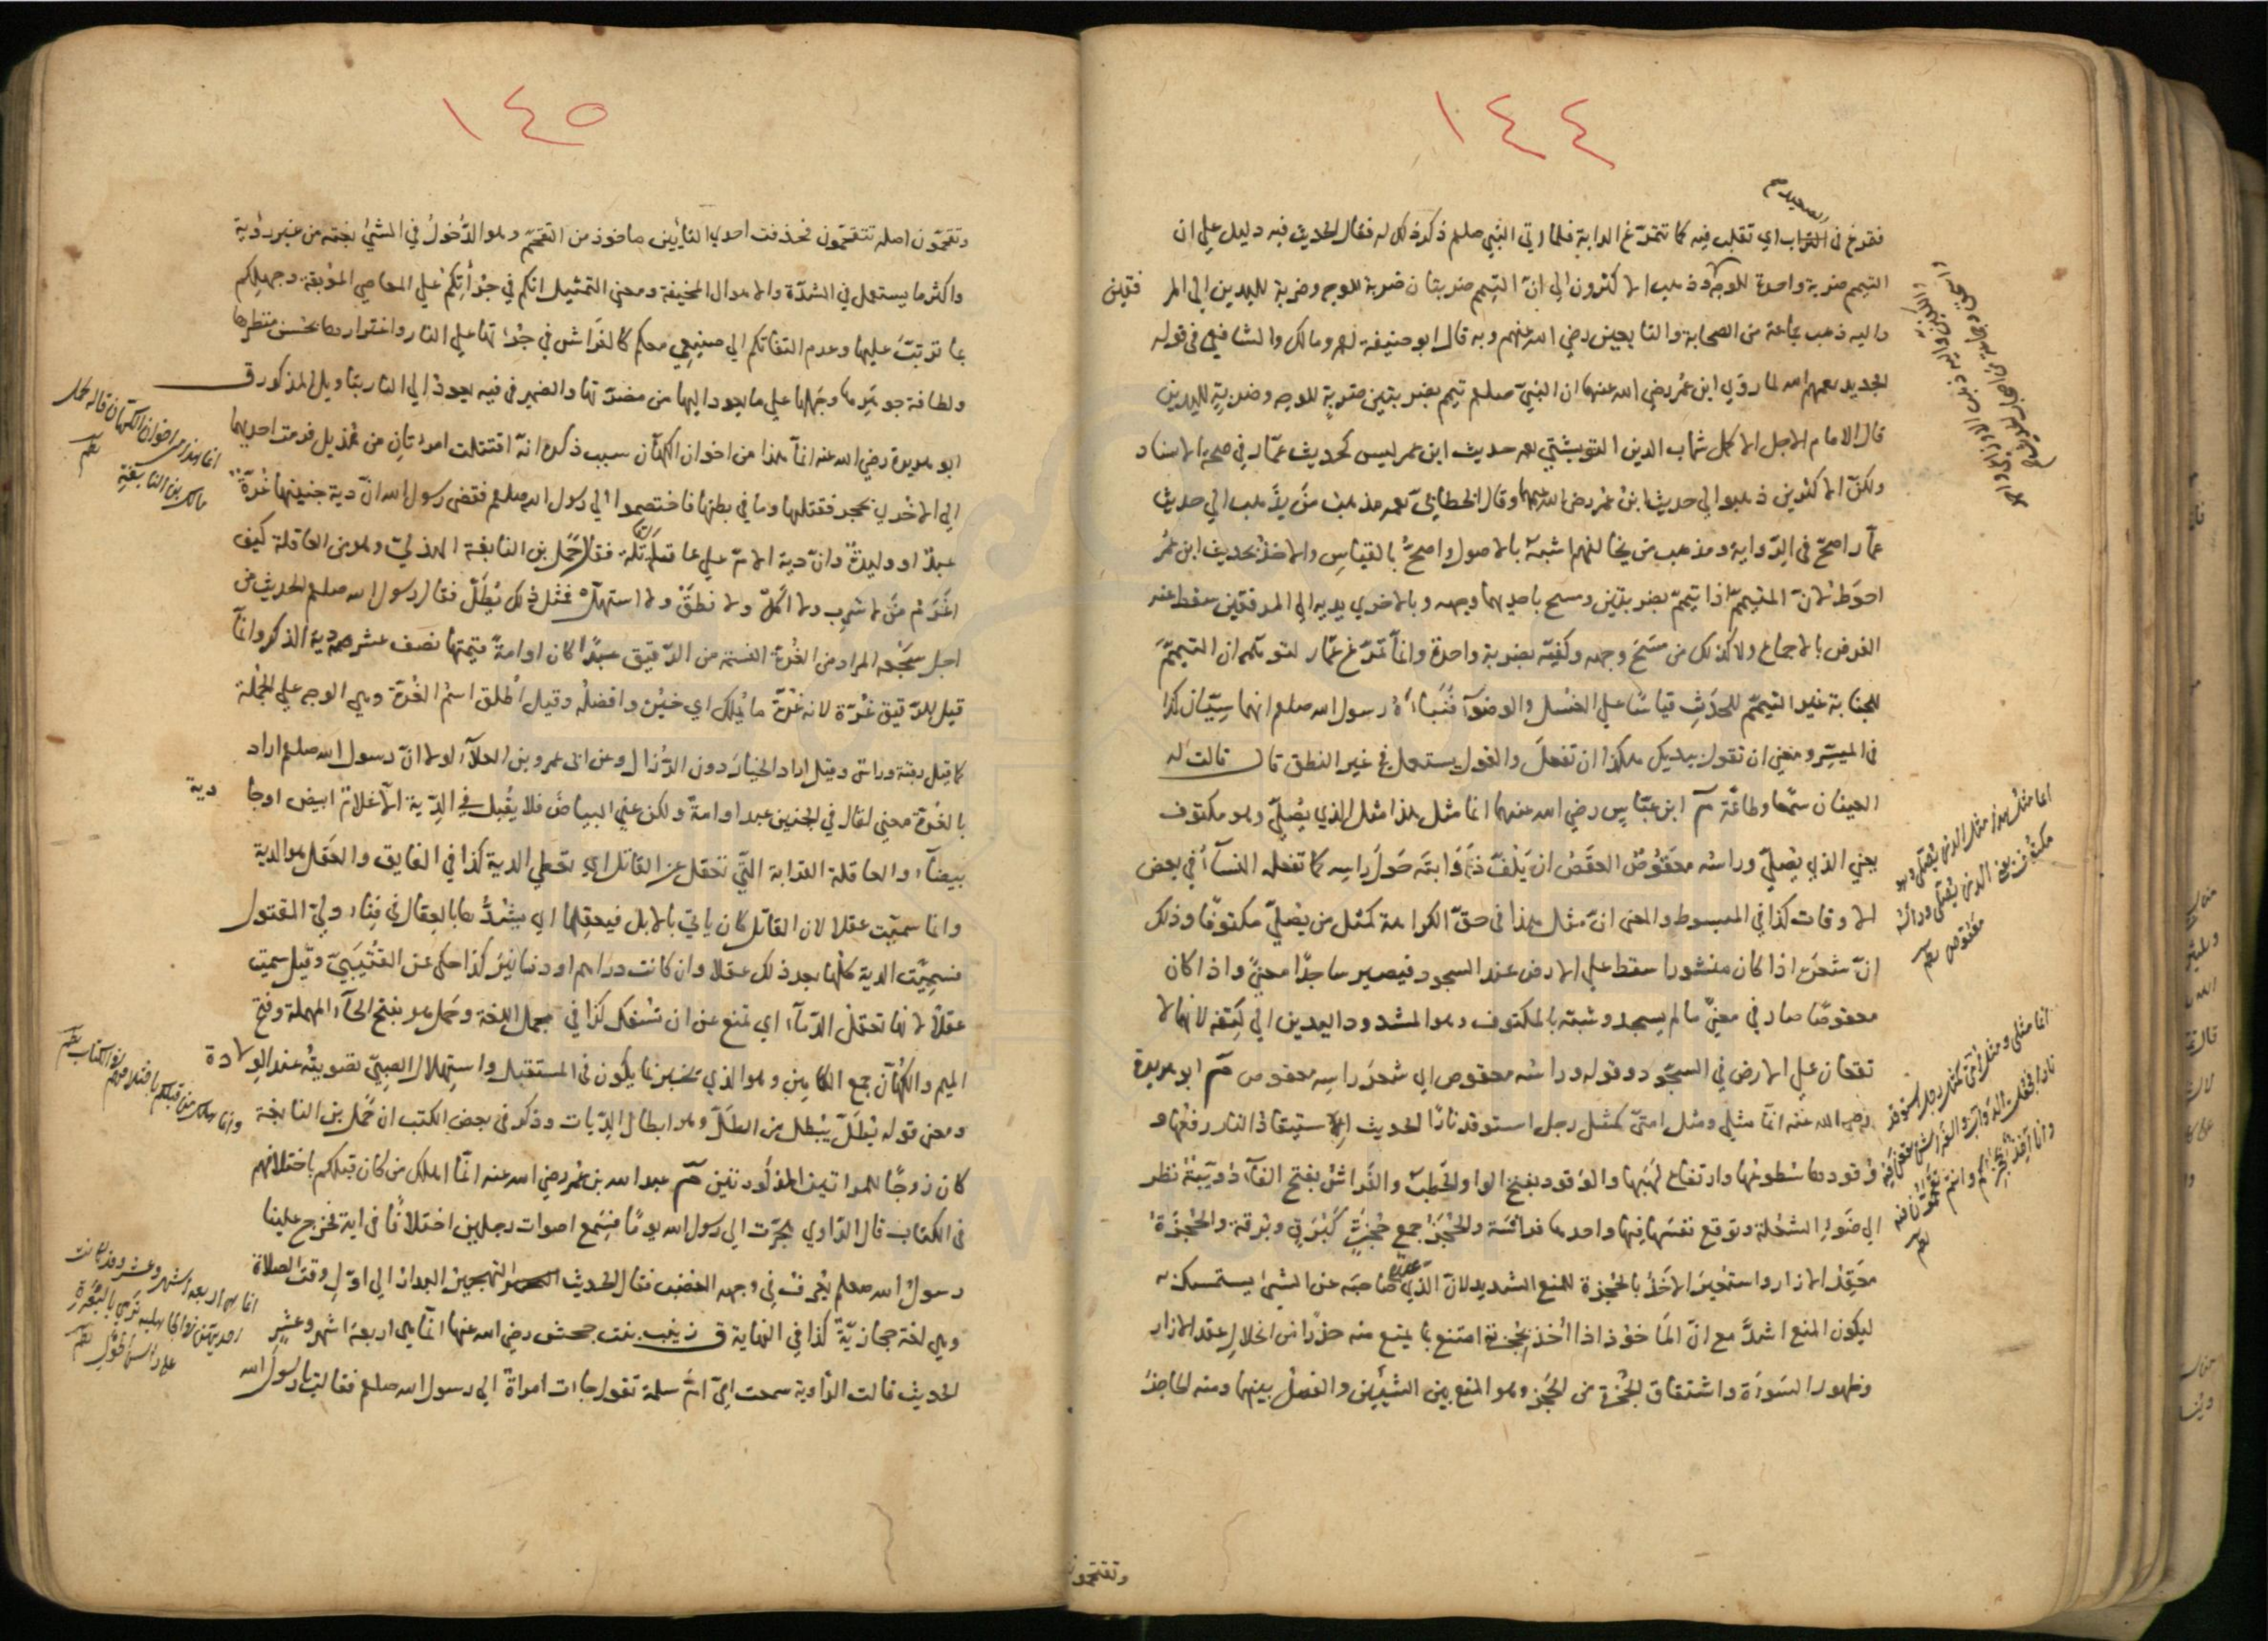 ١٤٤
الصعيد
فتمرغ في التراب اي تقلب فيه كما تتمرغ الدابة فلما اتي النبي صلعم ذكر ذلك له فقال الحديث فيه دليل علي ان
التيمم ضربة واحدة للوجه وذهب الاكثرون الي انّ التيمم ضربتان ضربة للوجه وضربة لليدين الي المر فقين
واليه ذهب جماعة من الصحابة والتابعين رضي الله عنهم وبه قال ابو حنيفة ومالك والشافعي في قوله
الجديد رحمهم الله لما روي ابن عمر رضي الله عنهما ان النبيّ صلعم تيمم بضربتين ضربة للوجه وضربة لليدين
قال الامام الاجل الاكمل شهاب الدين التوربشتي رحمه حديث ابن عمر ليس كحديث عمّار في صحة الاسناد
ولكنّ الاكثرين ذهبوا الي حديث ابن عمر رضي الله عنهما وقال الخطابيّ رحمه مذهب منْ يذهب الي حديث
عمّار اصحّ في الرّواية ومذهب من يخالفهم اشبهُ بالاصول واصحّ بالقياسِ والاخذ بحديث ابن عمر
احوط لانّ المتيمم اذا تيمم بضربتين ومسح باحديهما وجهه وبالاخري يديه الي المرفقين سقط عنه
الفرض بالاجماع ولا كذلك من مسَحَ وجهه وكفّيه بضربة واحدة وانما تمرّغ عمّار لتوهّمه ان التيممَ
للجنابة غير التيمّم للحدَثِ قياسًا علي الغسل والوضوء فنبّاَهُ رسول الله صلعم انهما سِيّان كذا
في الميسّر ومعني ان تقول بيديك هكذا ان تفعلَ والقول يستعمل في غير النطق قال قالت له
العينان سمعًا وطاعةً م ابن عبّاس رضي الله عنهما انما مثل هذا مثل الذي يصلّي وهو مكتوف
يعني الذي يصلّي وراسه معقوصٌ العقص ان يَلفّ ذَوَابتَه حَولَ راسه كما تفعله النساءُ في بعض
الاوقات كذا في المبسوط والمعني انّ مثل هذا في حقّ الكراهة كمثل من يصلّي مكتوفًا وذلك
انّ شعرَه اذا كان منشورا سقط علي الارض عند السجود فيصير ساجدًا معنيً واذا كان
معقوصًا صار في معني ما لم يسجد وشبّه بالمكتوف وهو المشدود اليدين الي كتفه لانهما لا
تقعان علي الارض في السجود وقوله وراسُه معقوص اي شعرُ راسه معقوص م ابو هريرة
رضي الله عنه انّما مثلي ومثل امتيّ كمثل رجل استوقد نارًا الحديث استيقاد النار رفعُها و
وقودها سُطوعُها وارتفاع لهَبها والوَقود بفتح الواو الحطبُ والفَراشُ بفتح الفاء ذُويبّةٌ تطير
الي ضَوءِ الشعْلة وتوقع نفسَها فيها واحدها فراشة والحُجَز جمع حُجزة كبُرَقٍ وبُرقة والحُجْزةُ
معَقِدُ الازار واستعيرَ الاخذُ بالحُجزة للمنع الشديد لانّ الذي يمنع صاحبَه عن الشيءِ يستمسك به
ليكونَ المنع اشدَّ مع انّ المأخوذ اذا اُخذَ بحُجزته امتنع بما يمنع منه حذرًا من انحلالِ عقد الازارِ
وظهور السَوءَة واشتقاق الحُجْزة من الحَجز وهو المنع بين الشيئين والفصلُ بينهما ومنه الحاجزُ
وتقتحمون
انما مثل هذا مثل الذي يصلي وهو
مكتوف يعني الذي يصلي وراسه
معقوص
انما مثلي ومثل امتي كمثل رجل استوقد
نارا فجعلت الدوابّ والفراش يقعن فيه
وانا آخذ بحجزكم وانتم تقتحمون فيه
١٤٥
وتقحمّون اصله تتقحمّون فحذفت احدي التائين ماخوذ من التقحّم وهو الدّخولُ في الشيءِ بغتة من غير رؤية
واكثر ما يستعمل في الشدّة والاهوال المخيفة ومعني التمثيل انكم في جُرأتِكم علي المعاصي الموبقة وجهلِكم
بما ترتّبَ عليها وعدم التفاتكم الي صنيعي معكم كالفَراش في جرأتها علي النار واغترارها بحُسن منظرها
ولطافة جوهرها وجَهلها علي ما يعود اليها من مضرّتها والضمير في فيه يعود الي النار بتاويل المذكور ق
ابو هريرة رضي الله عنه انّما هذا من اخوان الكهّان سبب ذكره انّه اقتتلت امرءتان من هذيل فرمت احديهما
الي الاخري بحجر فقتلتها وما في بطنها فاختصموا الي رسول الله صلعم فقضي رسول الله انّ ديةَ جنينها غُرّةٌ
عبدٌ او وليدةٌ وانّ دية الامّ علي عاقلة القاتلة فقال حَمل بن النابغة الهذليّ وهو من العاقلة كيف
اغرَم منْ لا شرِب ولا اَكَلَ ولا نطَقَ ولا استهلّ فمثل ذلك يُطلّ فقال رسول الله صلعم الحديث من
اجل سَجْعه المراد من الغُرّة النسَمة من الرّقيق عبدًا كان او امةً قيمتها نصف عشر دية الذكر وانما
قيل للرّقيق غُرّة لانه غرّةُ ما يُملك اي خيرُه وافضلُه وقيل اُطلق اسمُ الغُرّة وهي الوجه علي الجملة
كما قيل رقبة وراس وقيل اراد الخيارَ دون الرُذال وعن ابي عمرو بن العلاء لولا انّ رسول الله صلعم اراد
بالغُرّة معني لقال في الجنين عبد او امةٌ ولكن عني البياضَ فلا يقبل في الدّية الّا غلامٌ ابيض او جارية
بيضاء والعاقلة القرابة التي تعقل عن القاتل اي تعطي الدية كذا في الفايق والعَقل هو الدية
وانما سميّت عقلا لان القاتل كان ياتي بالابل فيعقِلها اي يشُدُّها بالعِقال في فِناء وليّ المقتول
فسُمِّيت الدية كلّها بعد ذلك عقلا وان كانت دراهم او دنانير كذا حكي عن القُتيبيّ وقيل سميت
عقلاً لانها تعقل الدّماءَ اي تمنع عن ان تسْفك كذا في مجمل اللغة وحَمل هو بفتح الحاء المهملة وفتح
الميم والكهّان جمع الكاهن وهو الذي يخبر بما يكون في المستقبل واستِهلال الصبيّ تصويتُه عند الوِلادة
ومعني قوله يُطلّ يُبطل من الطلّ وهو ابطال الدّيات وذكر في بعض الكتب ان حَمل بن النابغة
كان زوجًا للمراتين المذكورتين م عبد الله بن عمر رضي الله عنه انّما اهلك من كان قبلكم باختلافهم
في الكتاب قال الرّاوي هجرّت الي رسول الله يومًا فسَمع اصوات رجلين اختلافًا في اية فخرج علينا
رسولُ الله صلعم يُعرَفُ في وجهه الغضب فقال الحديث التهجيرُ البدار الي اوّل وقت الصلاة
وهي لغة حجازيّة كذا في النهاية ق زينب بنت جحش رضي الله عنها انّما هي اربعة اشهر وعشر
الحديث قالت الرّاوية سمعت اميّ امّ سلمة تقول جاءت امراة الي رسول الله صلعم فقالت يا رسول الله
انما هذا من اخوان الكهّان قاله لحمل
مالك بن النابغة
وانما هلك من قبلكم باختلافهم في الكتاب
انما هي اربعة اشهر وعشر وقد كانت
احديكن في الجاهلية ترمي بالبعرة
علي راس الحول